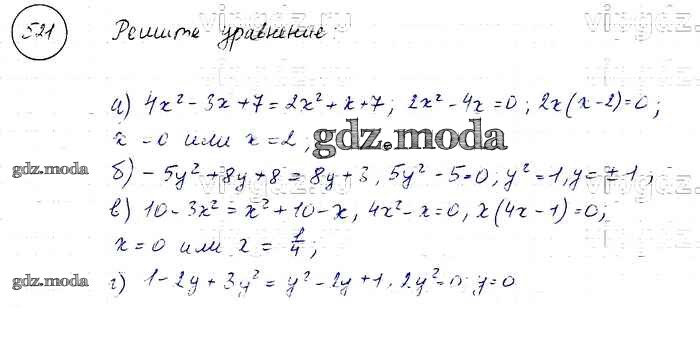 521 Решите уравнение:
а) 4x² - 3x + 7 = 2x² + x + 7; 2x² - 4x = 0; 2x(x - 2) = 0;
x = 0 или x = 2;
gdz.moda
gdz.moda
б) - 5y² + 8y + 8 = 8y + 3, 5y² - 5 = 0, y² = 1, y = ± 1;
в) 10 - 3x² = x² + 10 - x, 4x² - x = 0, x(4x - 1) = 0;
x = 0 или x = 1/4;
gdz.moda
г) 1 - 2y + 3y² = y² - 2y + 1, 2y² = 0 y = 0